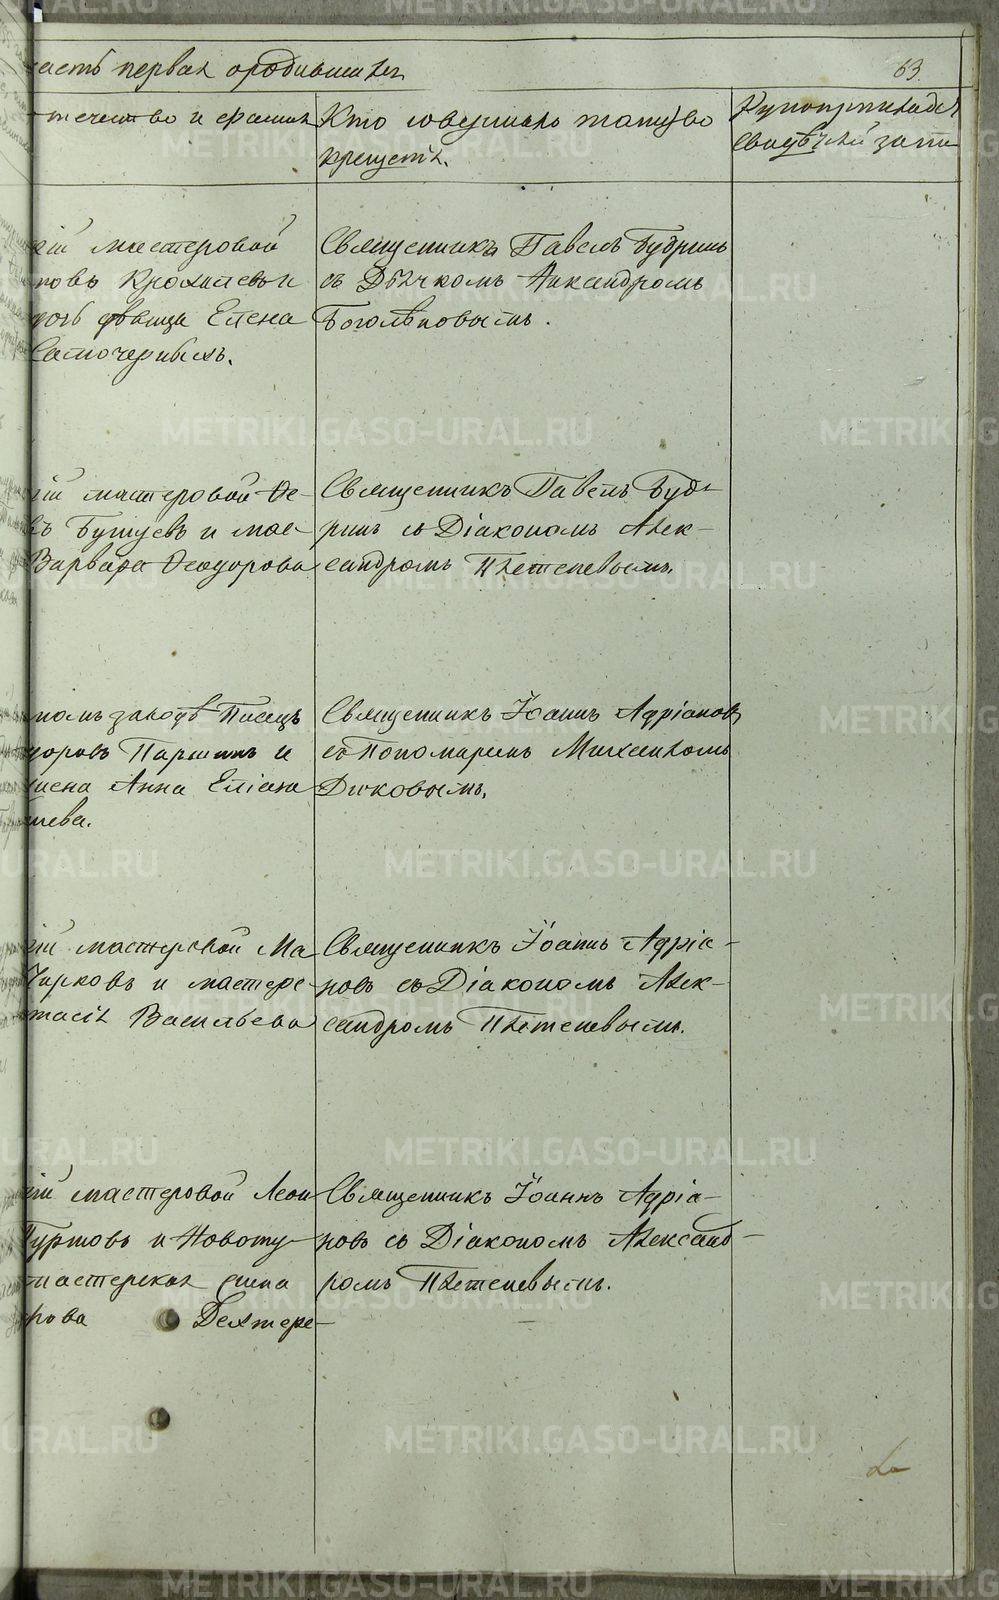 часть первая о родившихся
63
отечество и фамилия
Кто совершалъ таинство
крещенія.
Рукоприкладст
свидѣтелей запи
кій мастеровой
повъ Крохалевъ и
дочь дѣвица Елена
Самочерныхъ.
Священникъ Павелъ Будринъ
съ Дьячкомъ Никандромъ
Боголѣповымъ.
кій мастеровой Ѳе-
въ Бутуевъ и мас-
Варвара Ѳеодорова
Священникъ Павелъ Буд-
ринъ съ Діакономъ Алек-
сандромъ Плетеневымъ.
номъ заводѣ Писецъ
доровъ Паршинъ и
жена Анна Еліана
шева.
Священникъ Іоаннъ Адріановъ
съ Пономаремъ Михаиломъ
Диковымъ.
кій мастерской Ма
Чирковъ и мастерс-
тасія Васильева
Священникъ Іоаннъ Адріа-
новъ съ Діакономъ Алек-
сандромъ Плетеневымъ.
кій мастеровой Леон
Гуртовъ и Новоту-
мастерская
рова Дехтере-
Священникъ Іоаннъ Адріа-
новъ съ Діакономъ Александ-
ромъ Плетеневымъ.
METRIKI.GASO-URAL.RU